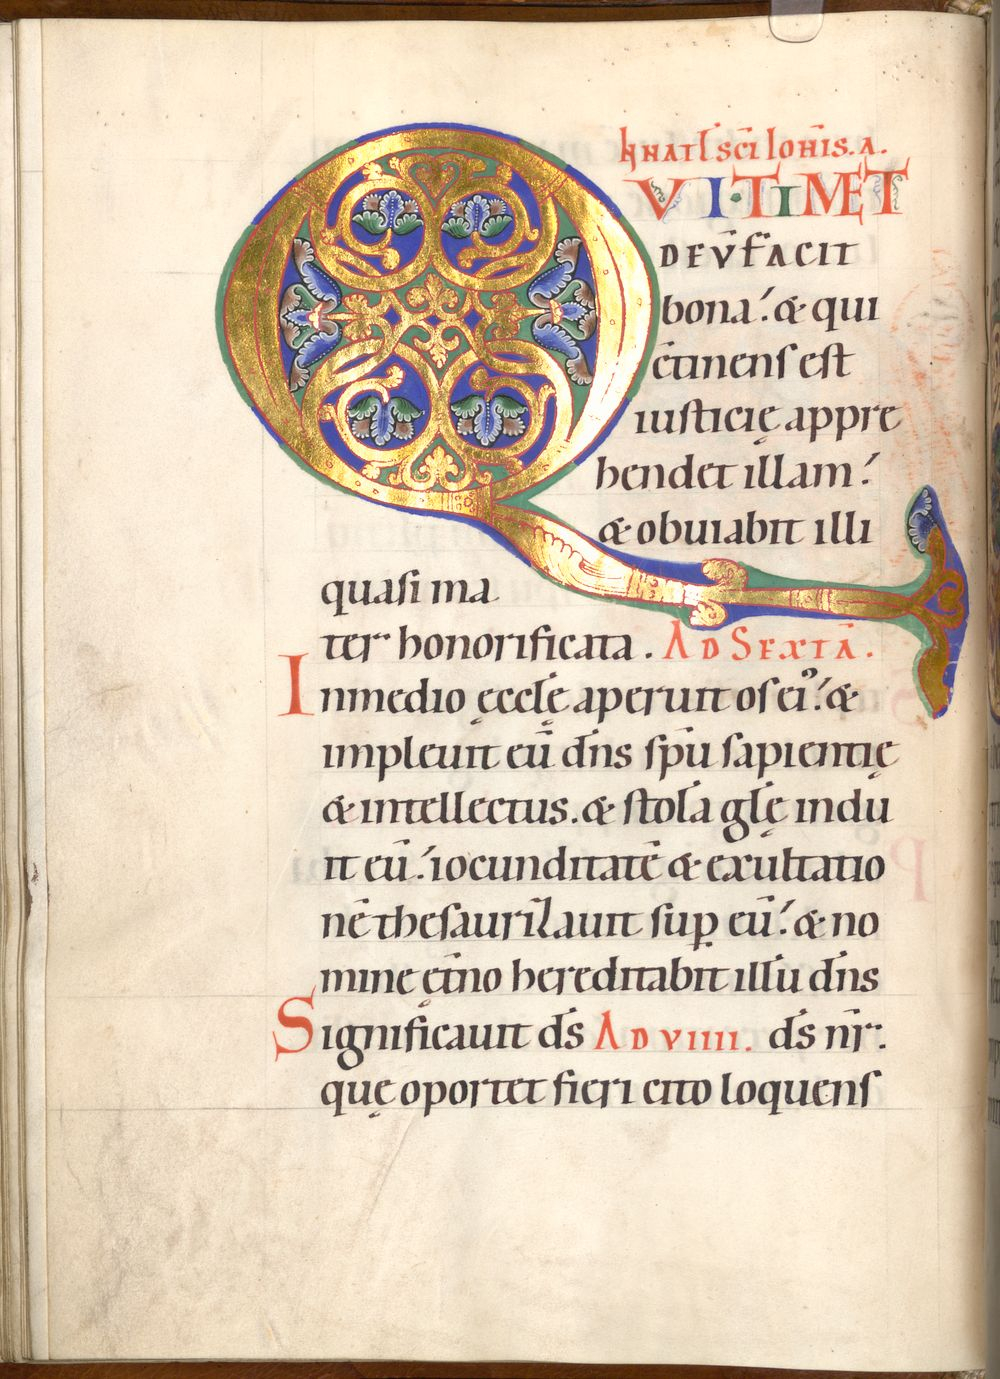 IN NATL̄ SCĪ IOHIS̄. A.
QVI·TIMET
DEV̄ FACIT
bona: & qui
c̄tinens est
iusticię appre
hendet illam:
& obuiabit illi
quasi ma
ter honorificata. AD SEXTĀ.
In medio ęcclę̄ aperuit os eiꝰ: &
impleuit eū dn̄s spū sapientię
& intellectus. & stolā glę̄ indu
it eū: iocunditatē & exultatio
nē thesaurizauit sup̄ eū: & no
mine ęt̄no hereditabit illū dn̄s
Significauit ds̄ AD VIIII. ds̄ nr̄.
quę oportet fieri cito loquens